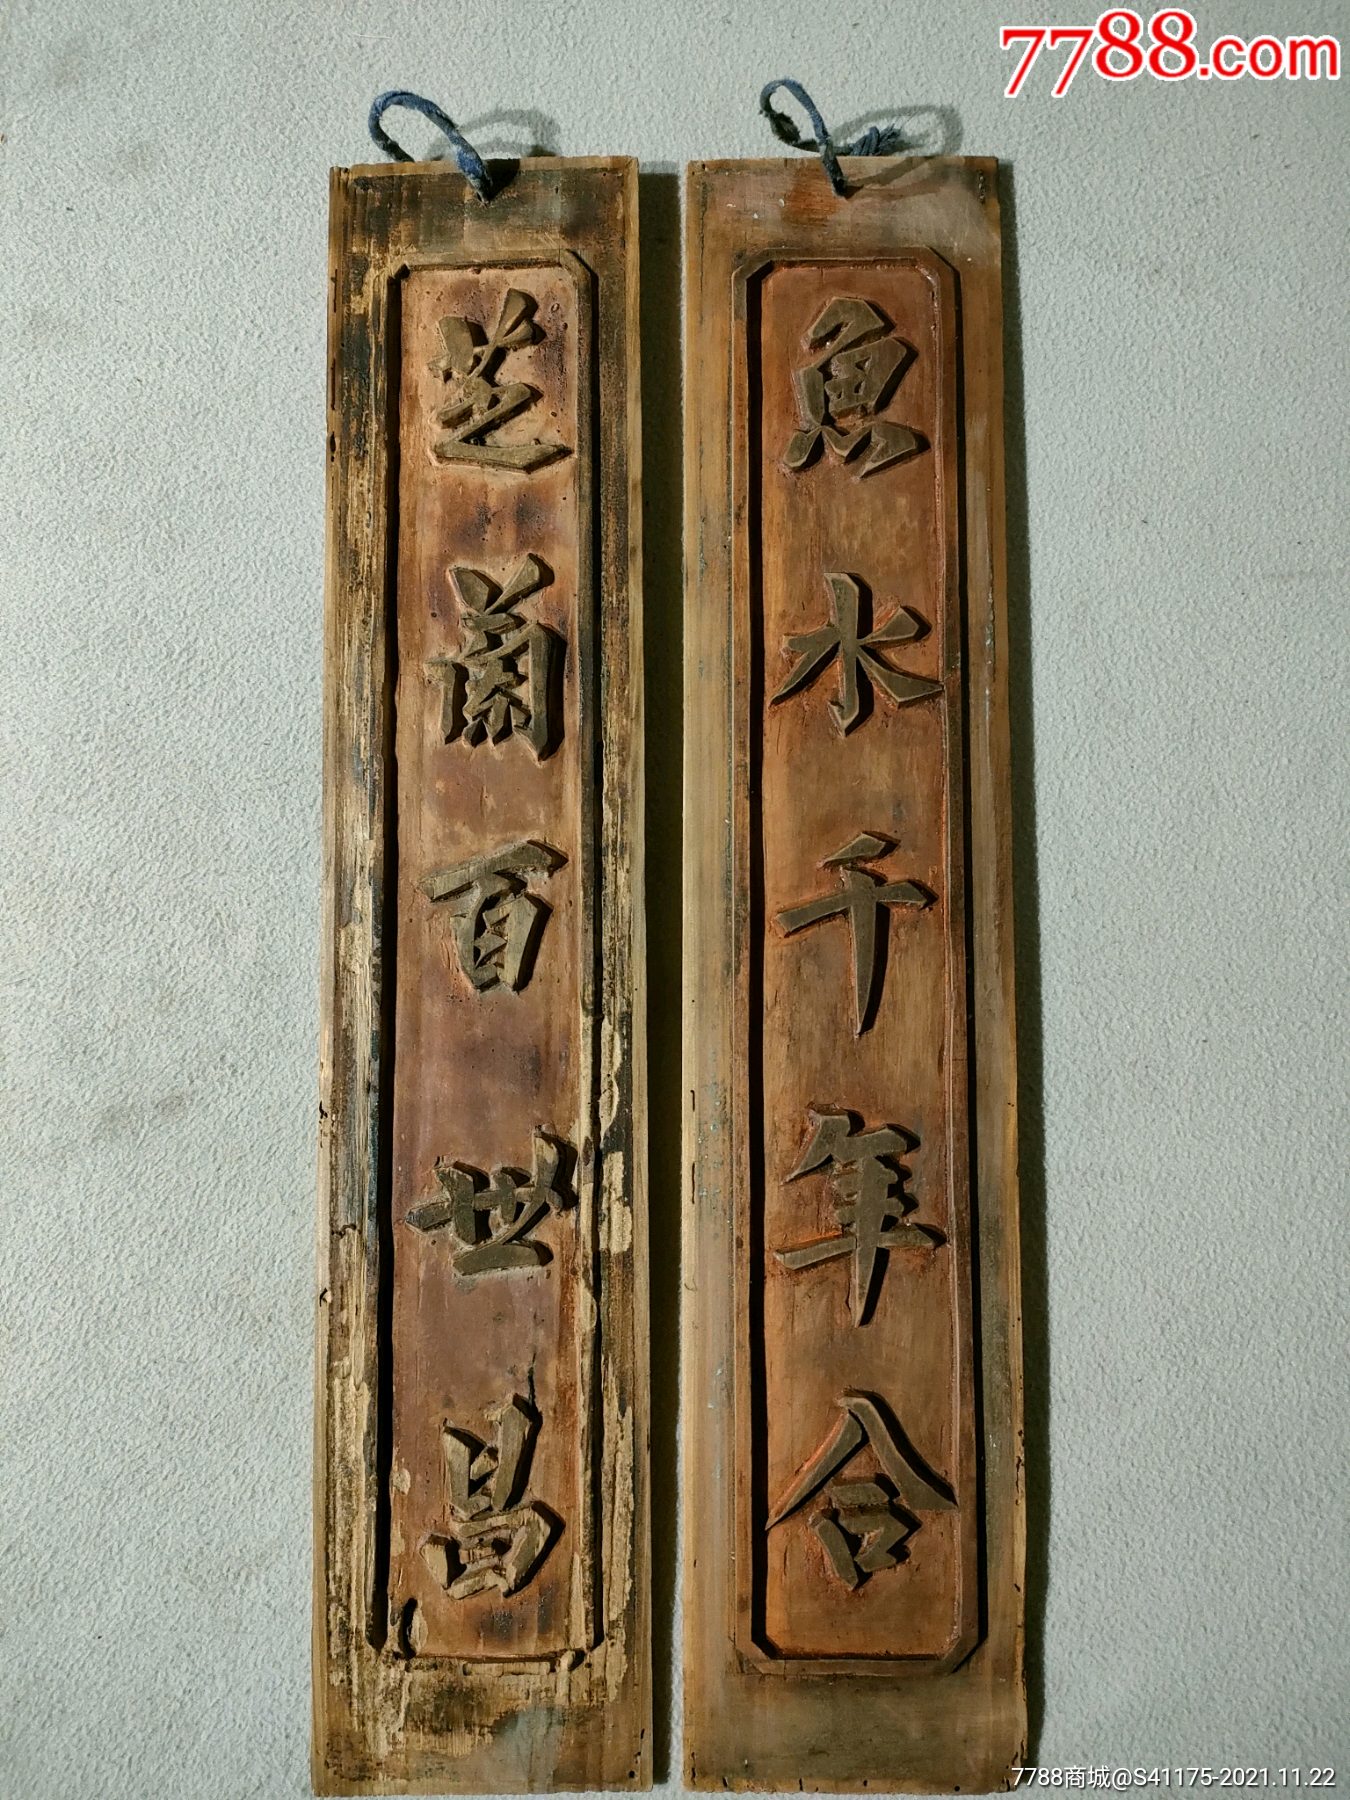 7788.com
魚水千年合
芝蘭百世昌
7788商城@S41175-2021.11.22